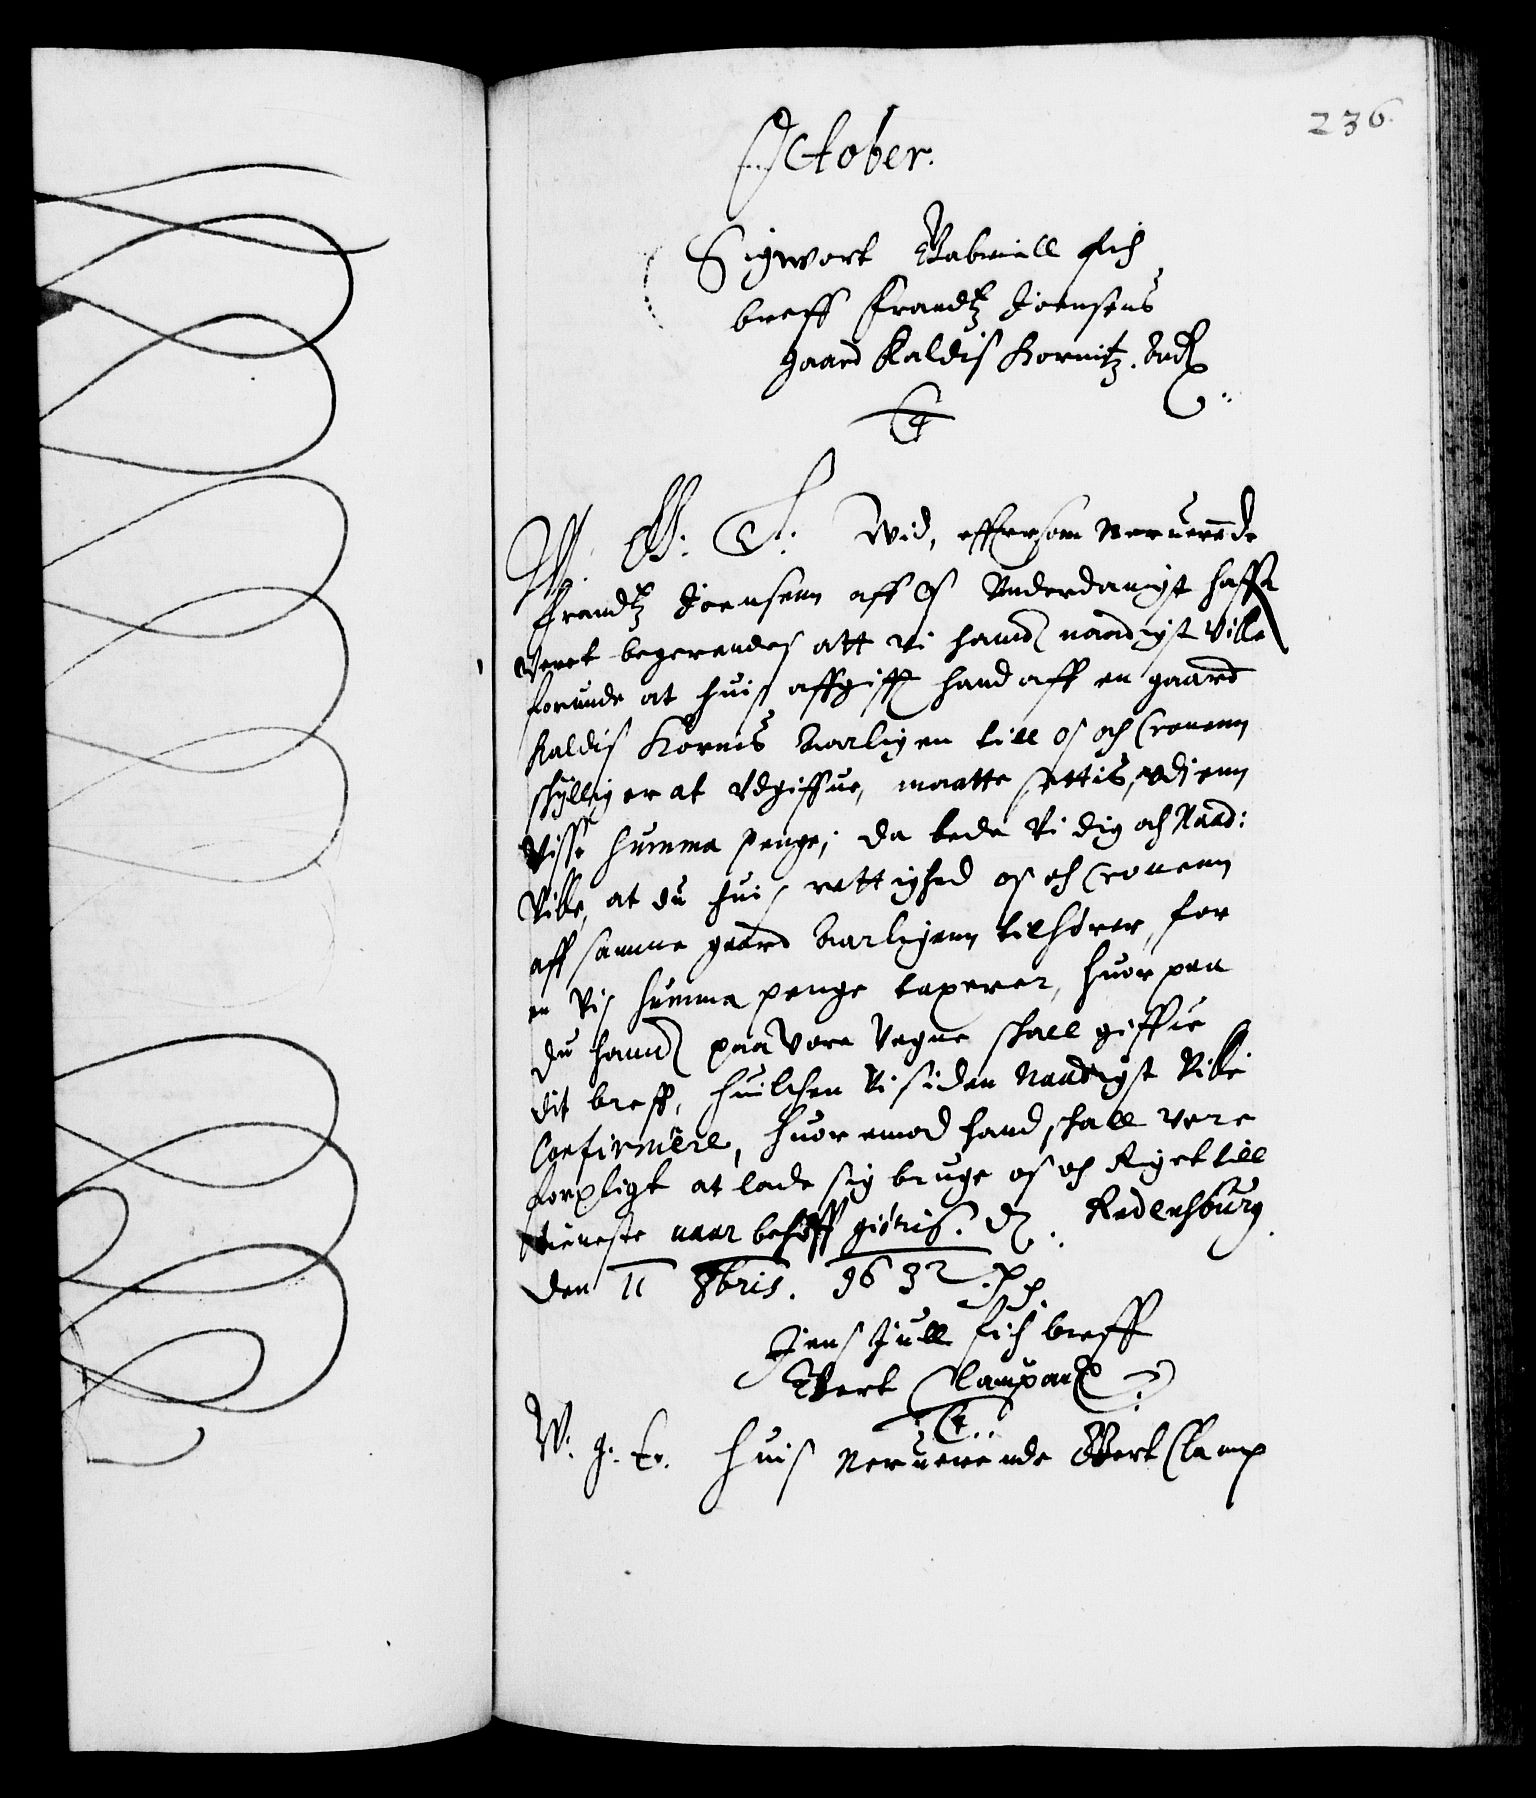 236.
October.
Sigwort Gabriell fich
breff Frandtz Joensens
gaard Kaldis Kornitz. And
W. G. T. Wid, effersom Neruerende
Frandtz Joensenn aff os Underdanigst haffr
Veret begerendes att vi hannd naadigst Ville
forunde at huis affgifft hand aff en gaard
Kaldis Kornis Aarligen till os och Cronenn
schyllig er at Udgiffue, maatte settis, udj enn
Visse Summa penge; da bede Vi dig och Naad:
Ville, at du huis rettighed os och Cronenn
aff samme gaard Aarligenn tilhører, for
en Vis summa penge taxerer, huor paa
du hannd paa vore Vegne schall giffue
dit breff, huilchen Vi siden Naadigst Ville
Confirmere, huor emod hand schall vere
forpligt at lade sig bruge os och Riget till
tieneste naar behoff giøris. D. Redensburg
den 11 8bris. 1632.
Jens Juell fich breff
Gert Clampand
W. g. t. Huis Neruerende Gert Clamp